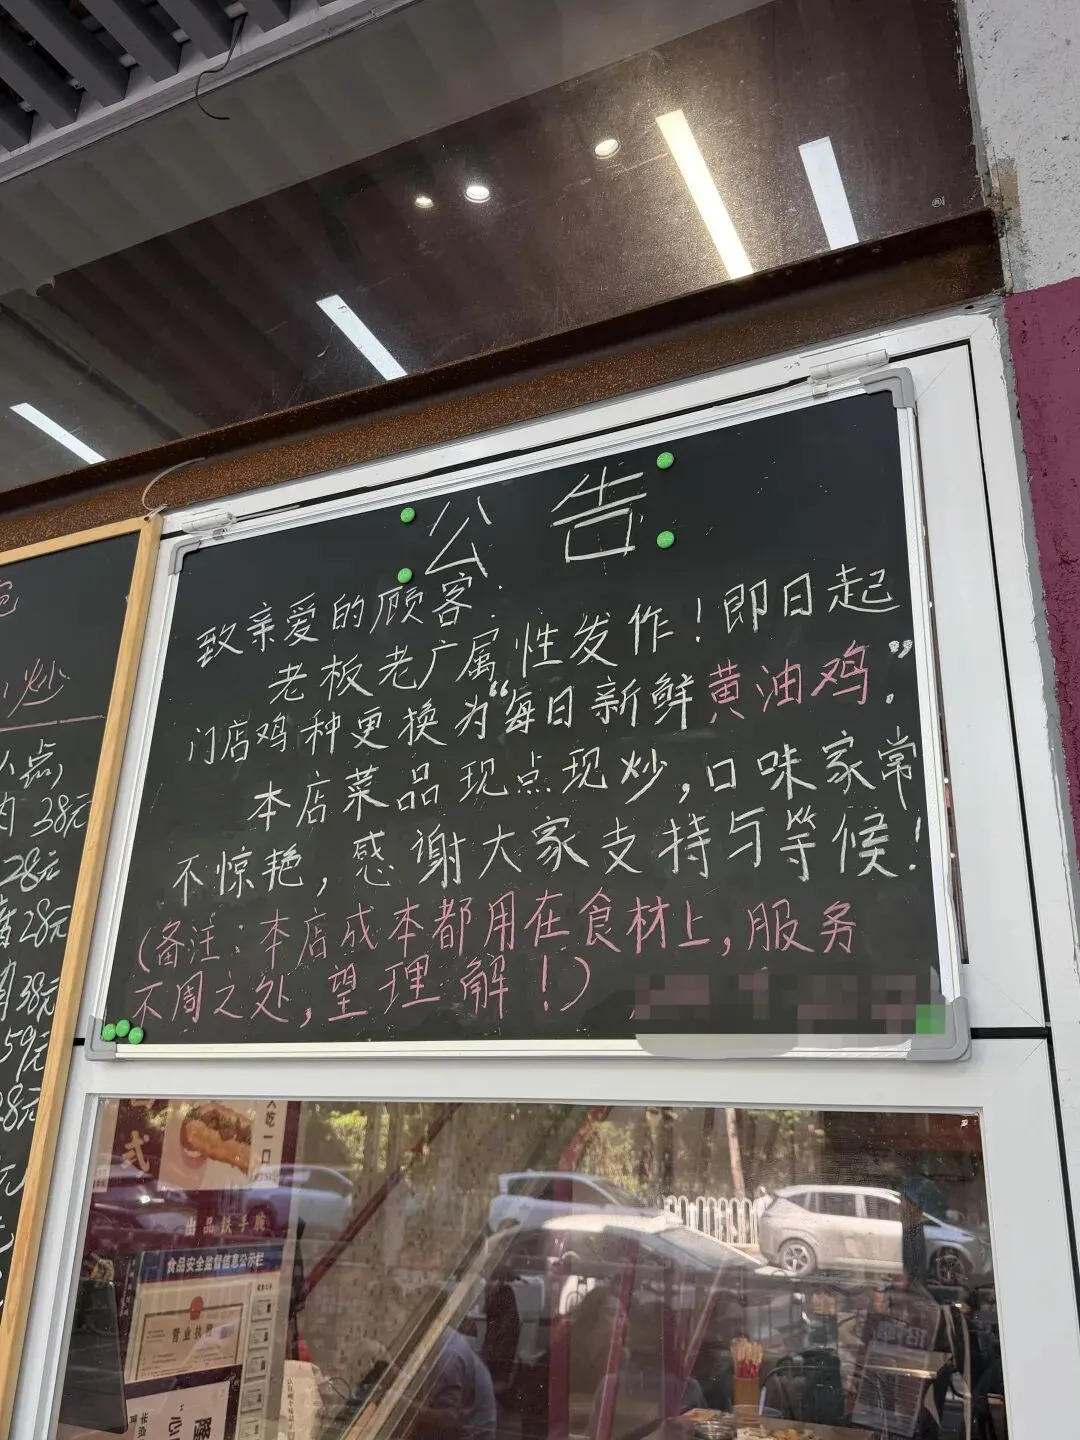 公告
致亲爱的顾客:
老板老广属性发作！即日起
门店鸡种更换为“每日新鲜黄油鸡”。
本店菜品现点现炒，口味家常
不惊艳，感谢大家支持与等候！
(备注：本店成本都用在食材上，服务
不周之处，望理解！)
炒
点
肉 38元
28元
28元
38元
59元
出品铁手腕
食品安全监督信息公示栏
营业执照